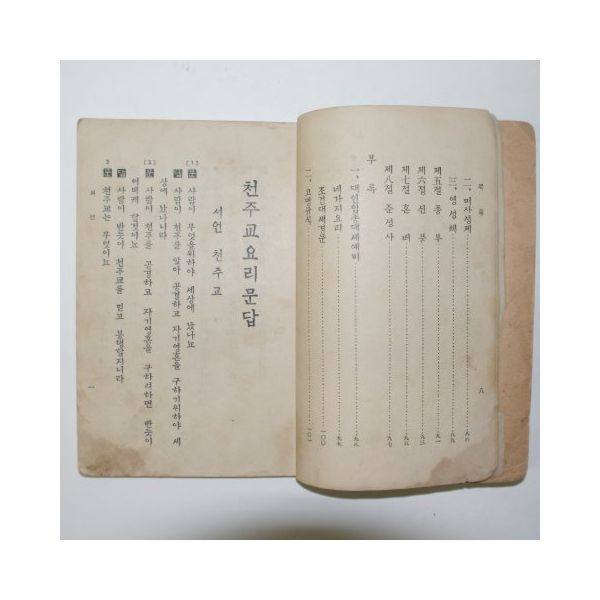 목록
二、미사성제……八八
三、영성체……八九
제五절 종부……九一
제六절 신품……九三
제七절 혼배……九五
제八절 준성사……九七
부록
一、대현임종대세예비
네가지요리……九八
조건대세경문……一〇〇
二、고명유식……一〇一
六
천주교요리문답
서언 천주교
【1】
문 사람이 무엇을위하야 세상에 낫나뇨
답 사람이 천주를 알아 공경하고 자기영혼을 구하기위하야 세
상에 낫나니라
【2】
문 사람이 천주를 공경하고 자기영혼을 구하려하면 반듯이
어떠케 할것이뇨
답 사람이 반듯이 천주교를 믿고 봉행할지니라
3 문 천주교는 무엇이뇨
서언
一